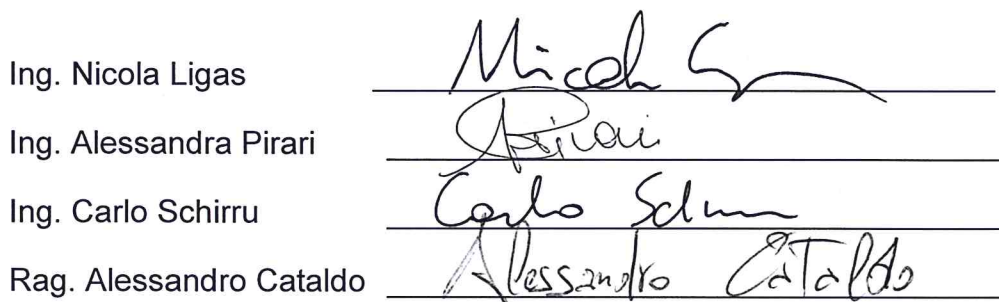 Ing. Nicola Ligas Nicola
Ing. Alessandra Pirari Pirari
Ing. Carlo Schirru Carlo Schirru
Rag. Alessandro Cataldo Alessandro Cataldo